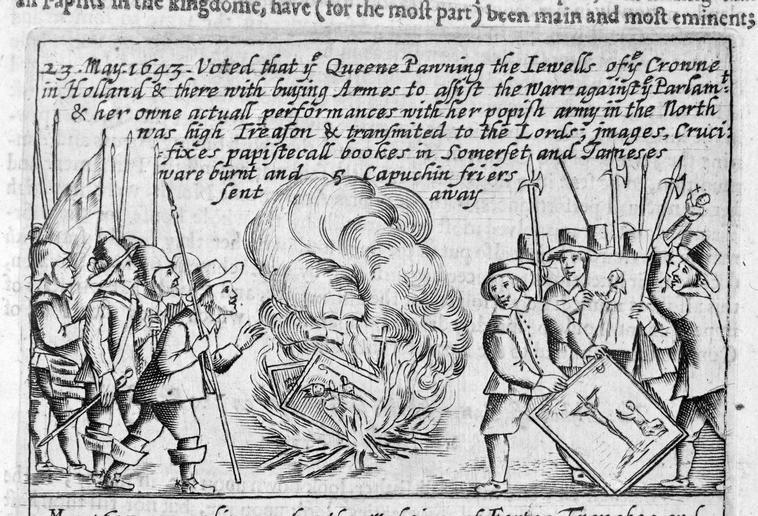 in the kingdome, have (for the most part) been main and most eminent;
23. May. 1643. Voted that yᵉ Queene Pawning the Iewells of yᵉ Crowne
in Holland & there with buying Armes to assist the Warr against yᵉ Parlamᵗ:
& her owne actuall performances with her popish army in the North
was high Treason & transmited to the Lords; images, Cruci:
-fixes papisticall bookes in Somerset and Jameses
ware burnt and 5 Capuchin friers
sent away